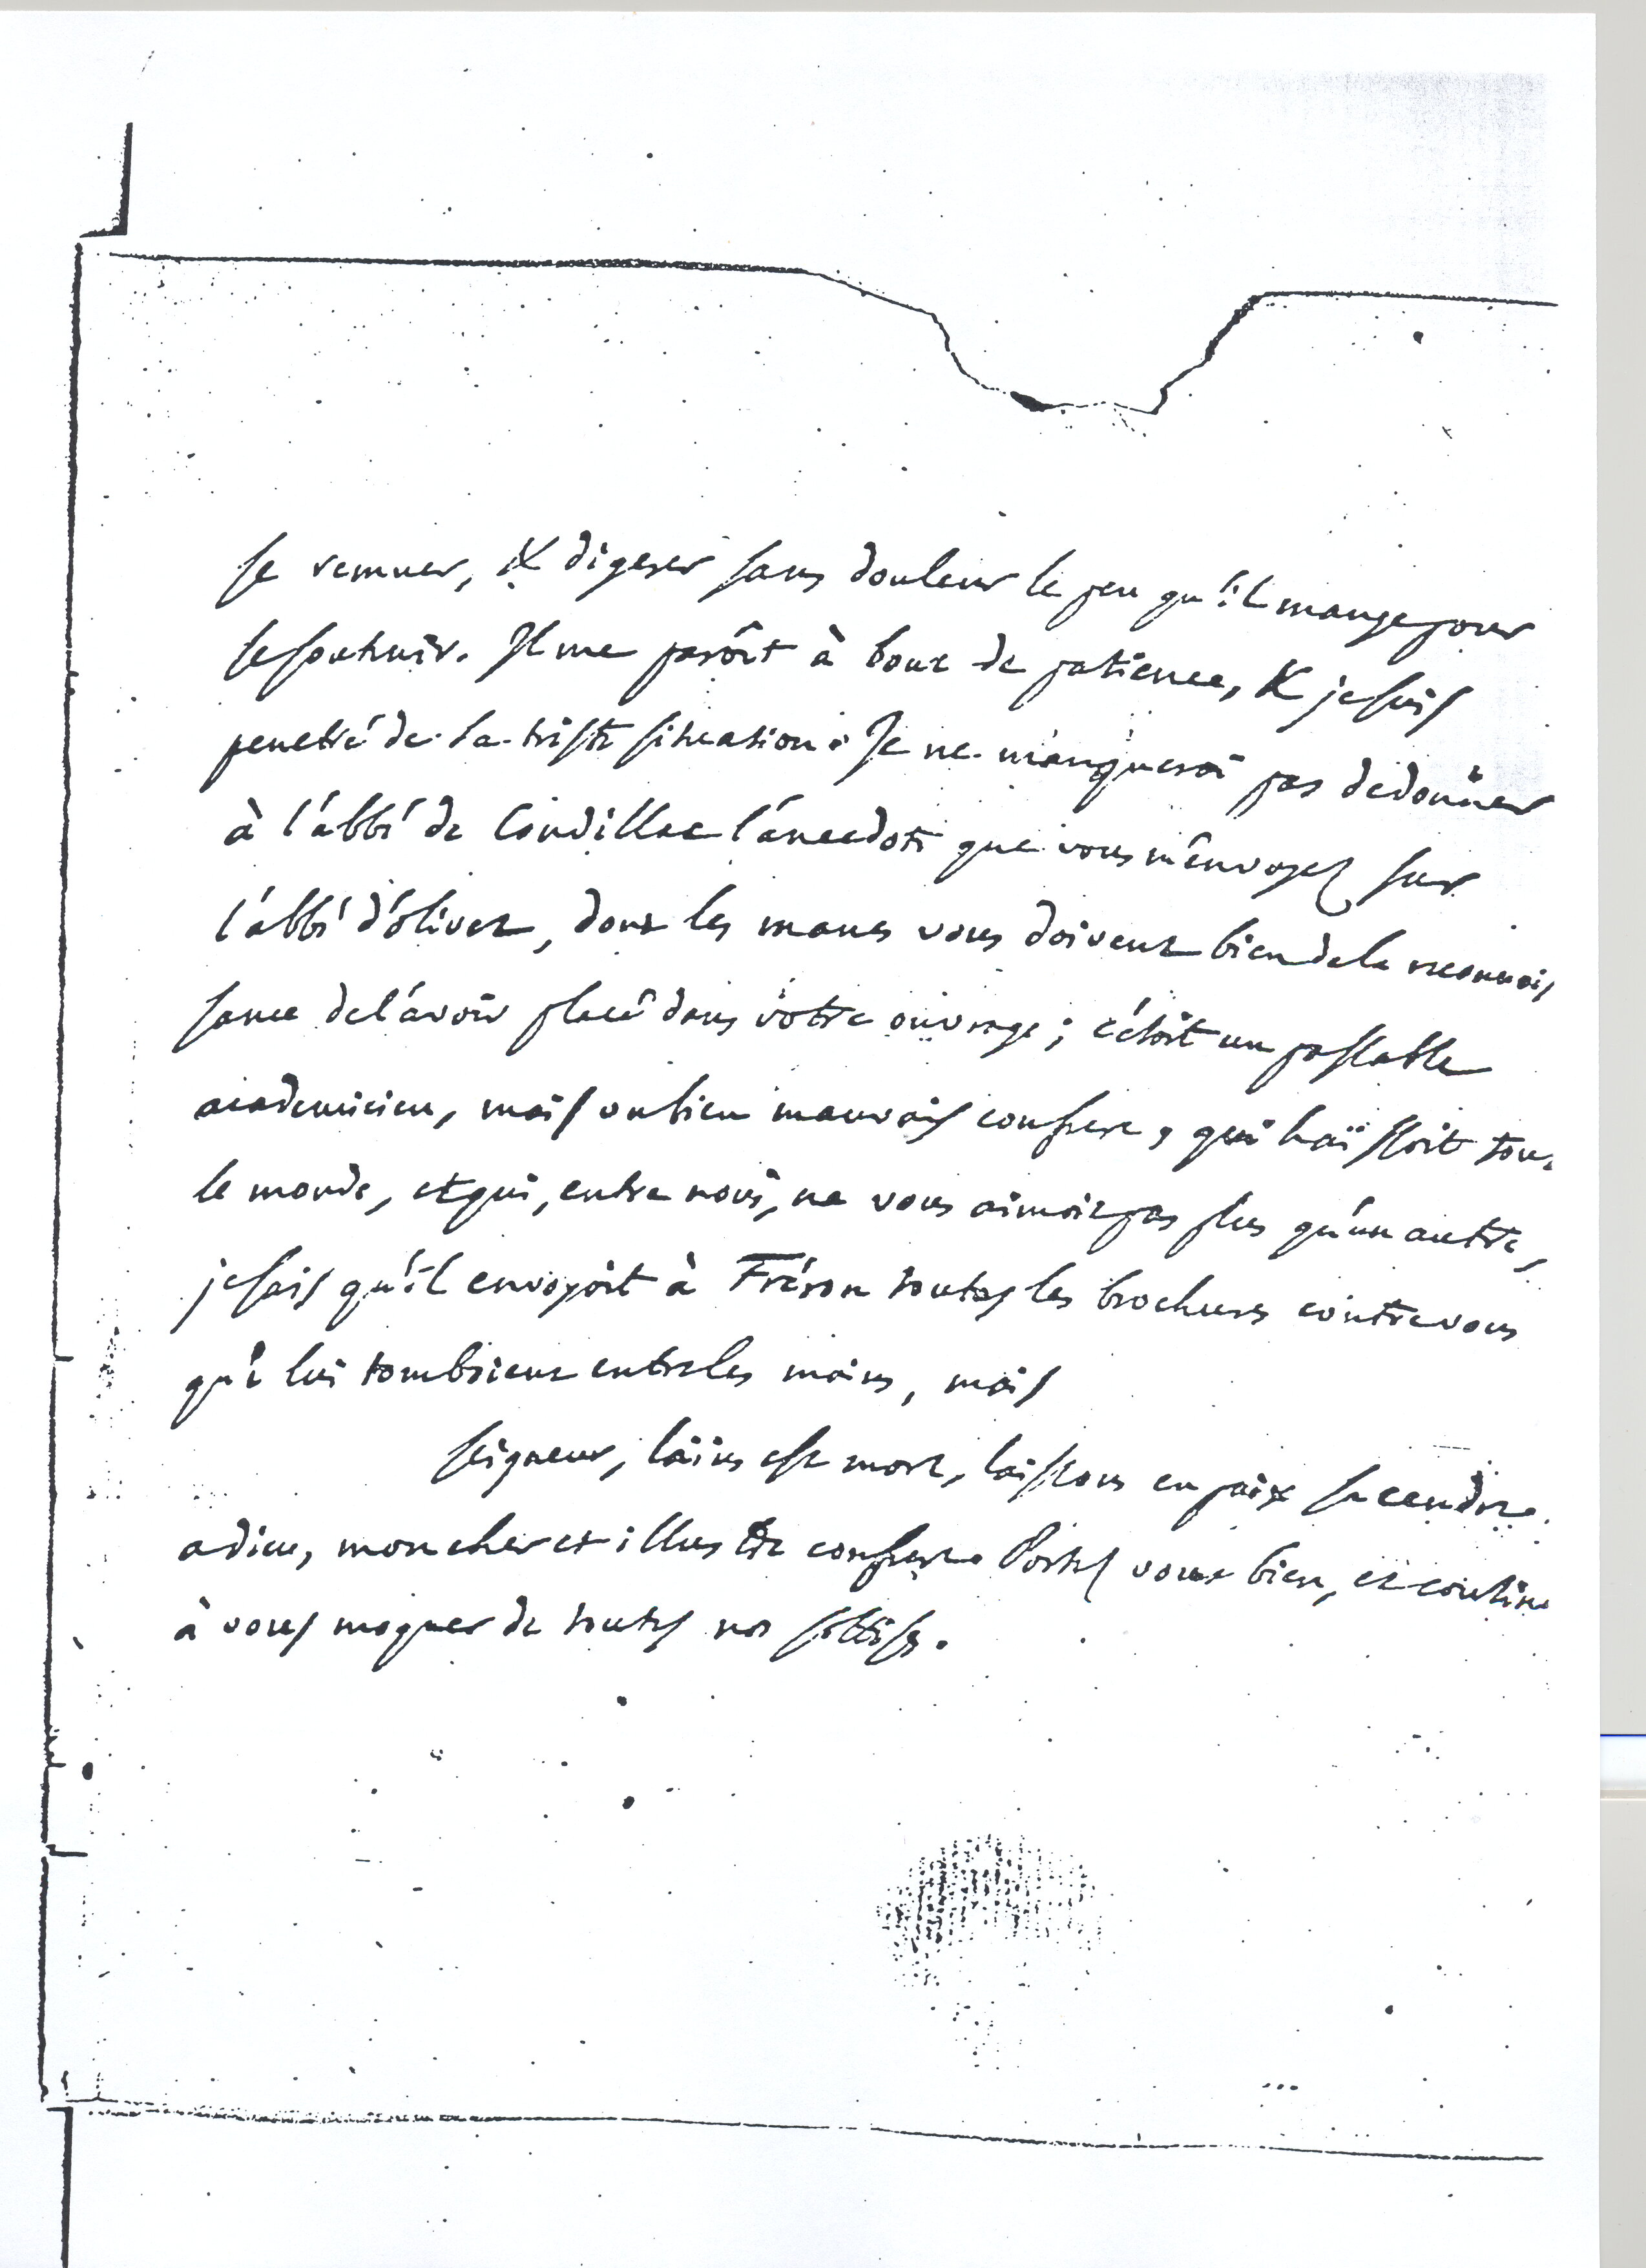 se remuer, & digerer sans douleur le peu qu'il mange pour
se soutenir. Il me paroît à bout de patience, & je suis
penetré de sa triste situation. Je ne manquerai pas de donner
à l'abbé de Condillac l'anecdote que vous m'envoyez sur
l'abbé d'olivet, dont les manes vous doivent bien de la reconnois
sance de l'avoir placé dans votre ouvrage; c'étoit un passable
academicien, mais un bien mauvais confrere, qui haïssoit tout
le monde, et qui, entre nous, ne vous aimoit pas plus qu'un autre,
je sais qu'il envoyoit à Fréron toutes les brochures contre vous
qui lui tomboient entre les mains, mais
seigneur, laïus est mort, laissons en paix sa cendre.
adieu, mon cher et illustre confrere. Portez vous bien, et continu
à vous moquer de toutes nos sottises.